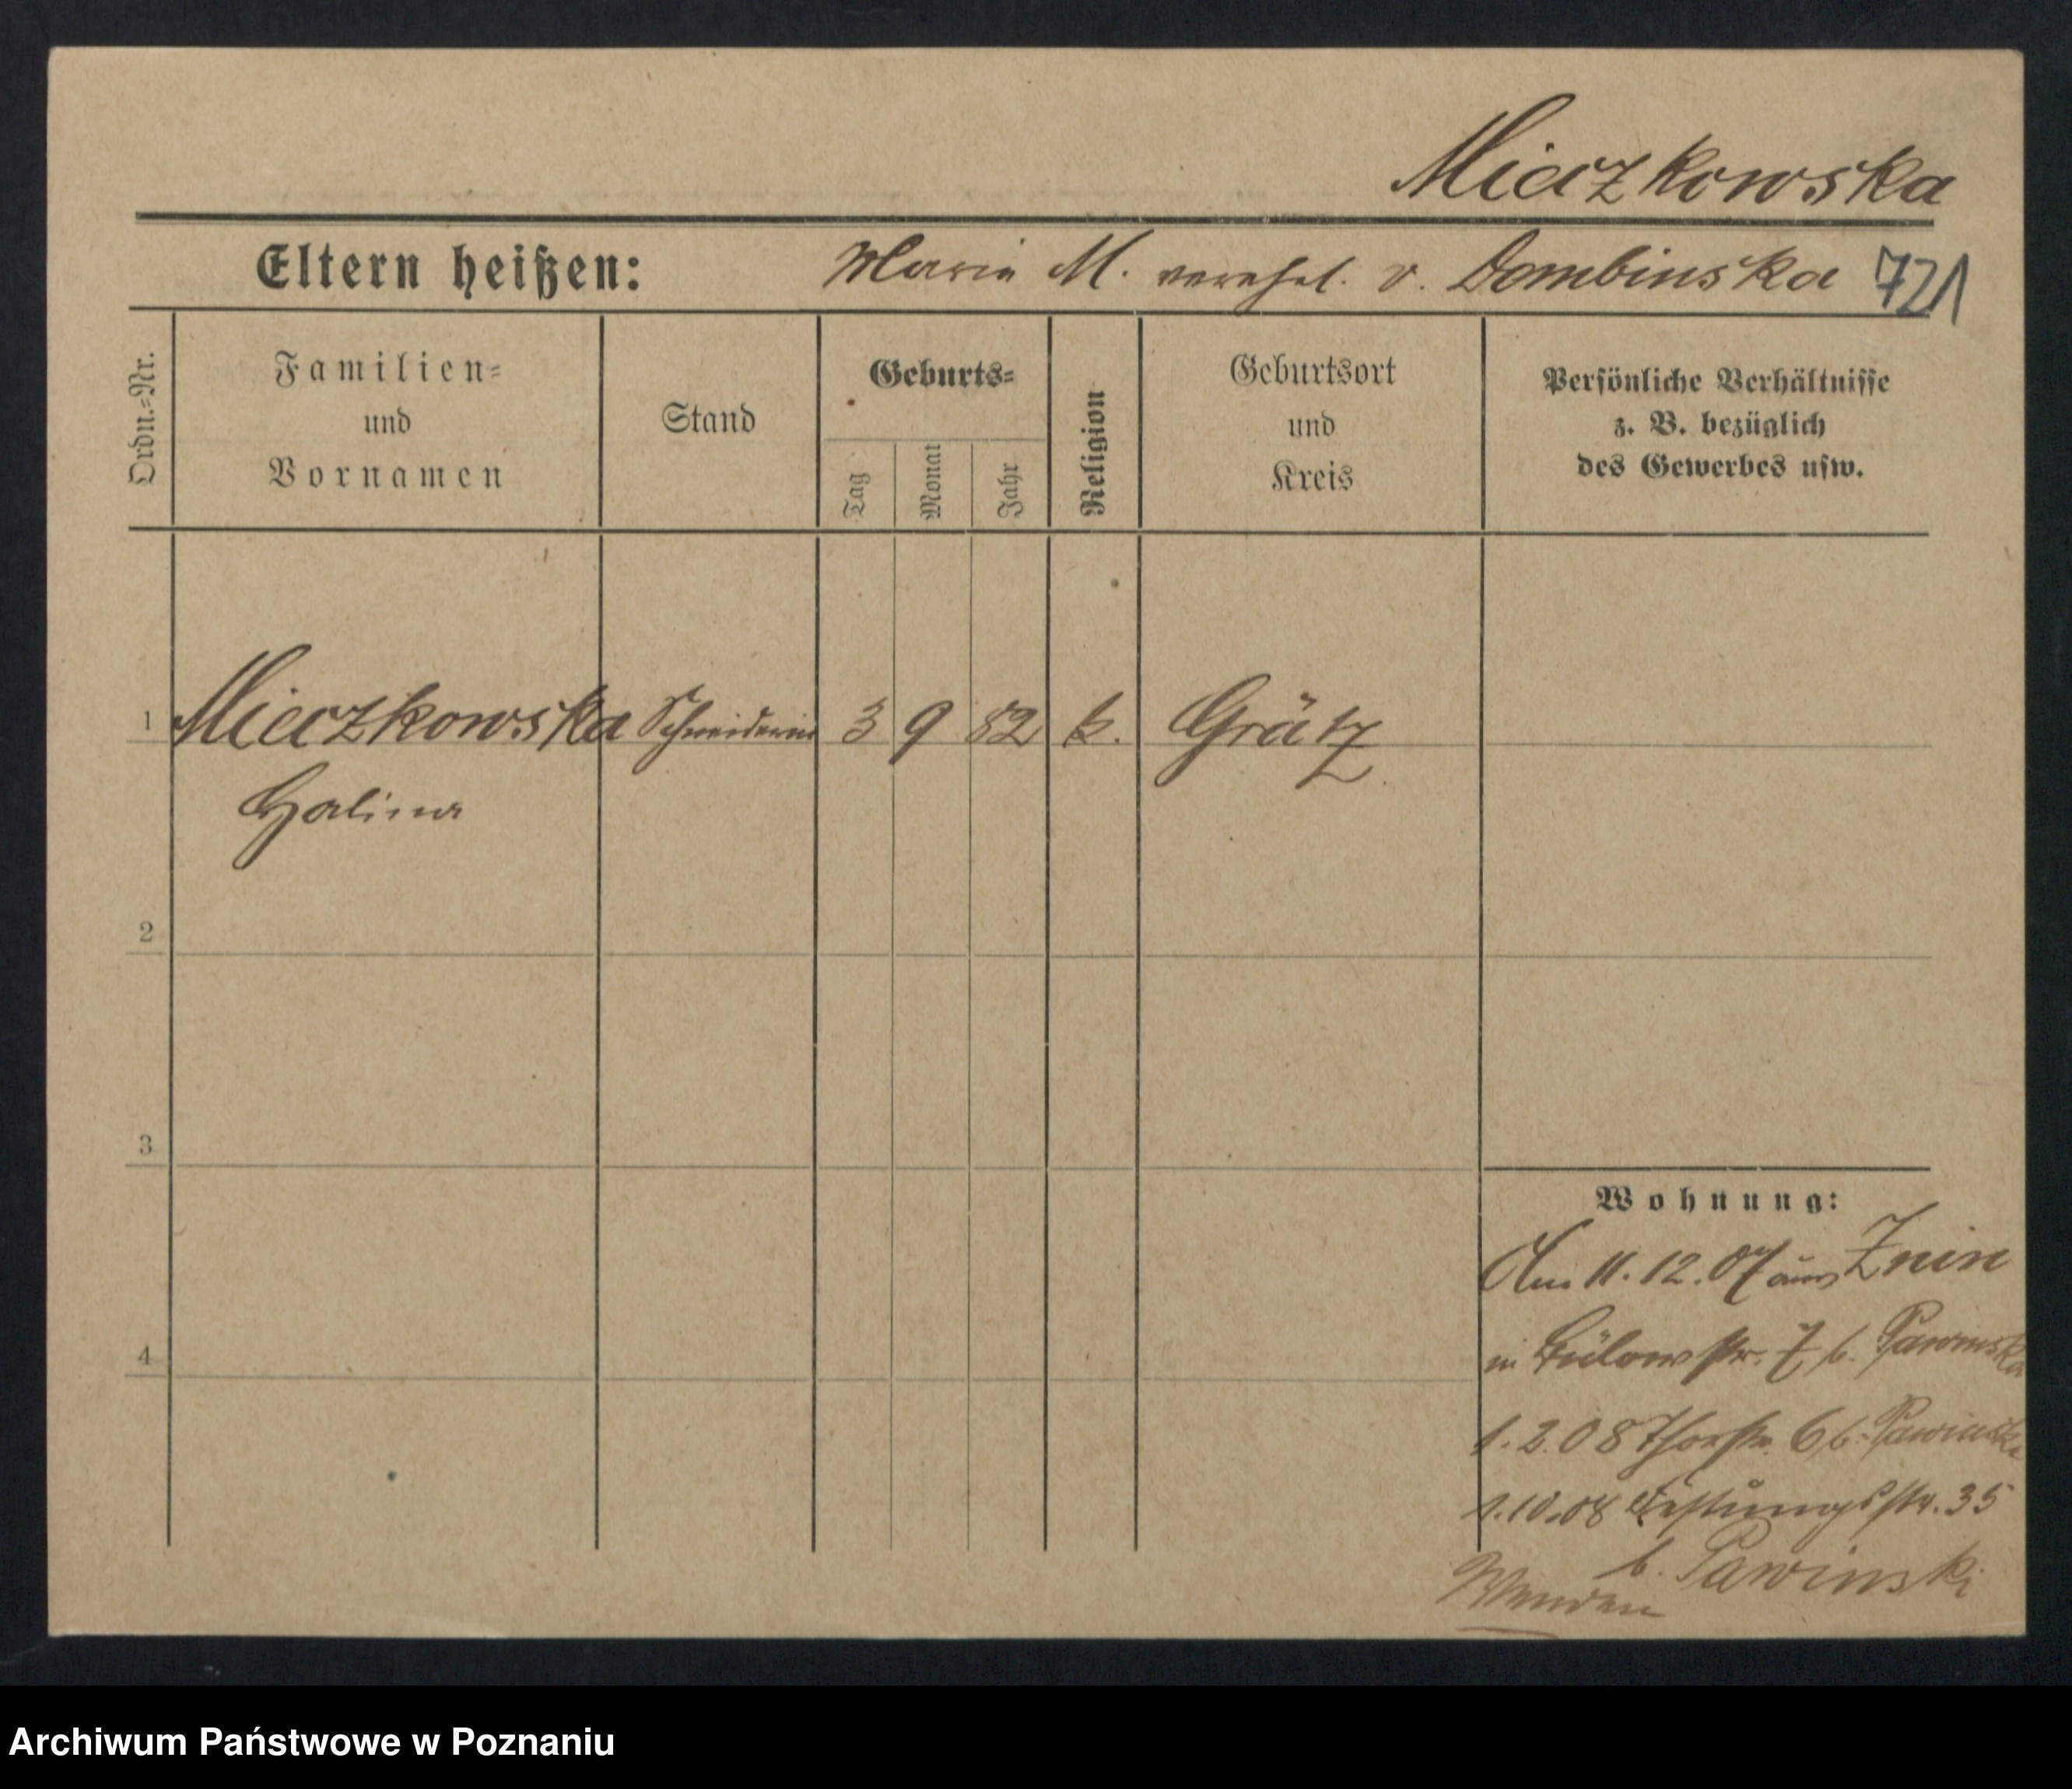 Mieczkowska
Eltern heißen: Marie M. verehel. v. Dombinska 721
Ordn.-Nr.
Familien-
und
Vornamen
Stand
Geburts-
Tag
Monat
Jahr
Religion
Geburtsort
und
Kreis
Persönliche Verhältnisse
z. B. bezüglich
des Gewerbes usw.
1 Mieczkowska Schneiderin 3 9 82 k. Grätz
Halina
2
3
4
Wohnung:
Am 11. 12. 07 aus Znin
in Bülowstr. 7 b. Pawinska
1. 2. 08 Thorstr. 6 b. Pawinska
1.10.08 Festungsstr. 35
b. Pawinski
Wenden
Archiwum Państwowe w Poznaniu